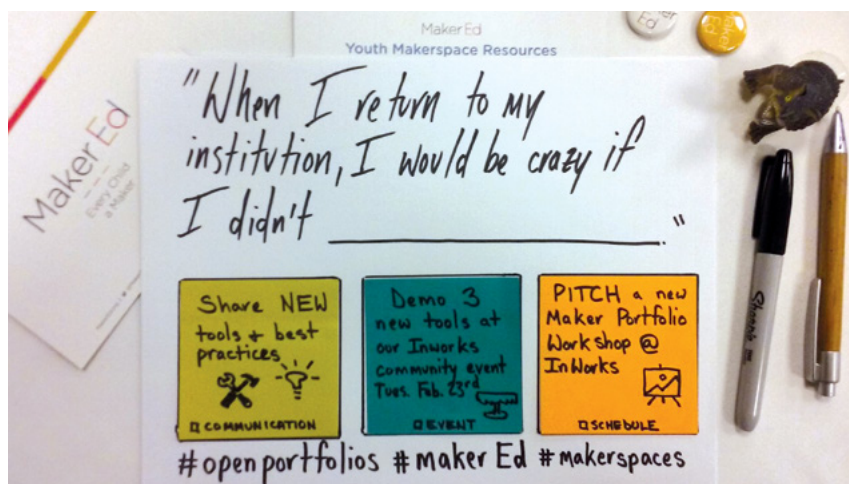 Maker Ed
Youth Makerspace Resources
Maker Ed
Every Child
a Maker
Maker
Ed
"When I return to my
institution, I would be crazy if
I didn't ____________________."
Share NEW
tools + best
practices
COMMUNICATION
Demo 3
new tools at
our Inworks
community event
Tues. Feb. 23rd
EVENT
PITCH a new
Maker Portfolio
Workshop @
InWorks
SCHEDULE
#openportfolios #maker Ed #makerspaces
Sharpie